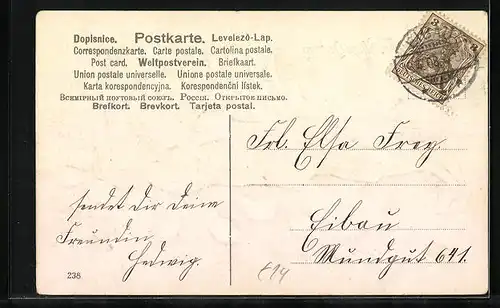 Dopisnice. Postkarte. Levelező-Lap.
Correspondenzkarte. Carte postale. Cartolina postale.
Post card. Weltpostverein. Briefkaart.
Union postale universelle. Unione postale universale.
Karta korespondencyjna. Korespondenční lístek.
Всемірный почтовый союзъ. Россія. Открытое письмо.
Brefkort. Brevkort. Tarjeta postal.
3
3
Frl. Elsa Frey.
Eibau
Mundgut 641.
sendet dir deine
Freundin
Hedwig.
238